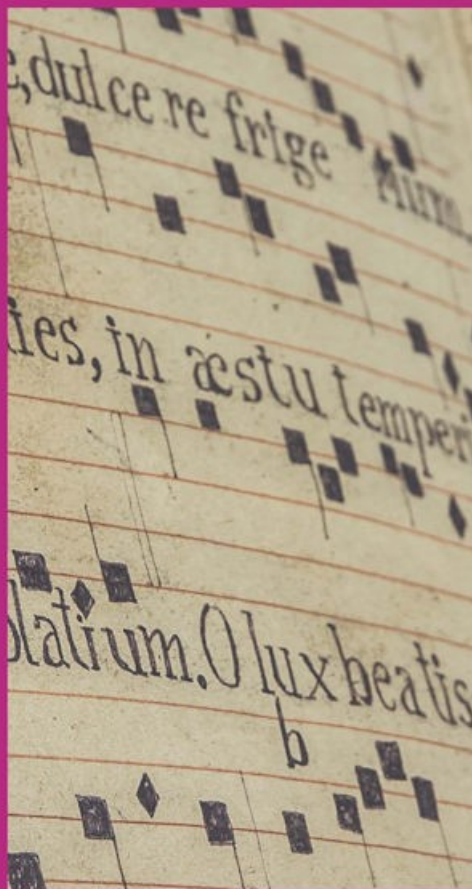 e, dulce re frige
ies, in æstu temper
latium. O lux beatis
b